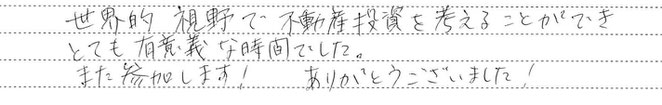 世界的 視野で 不動産投資を考えることができ
とても有意義な時間でした。
また参加します! ありがとうございました!